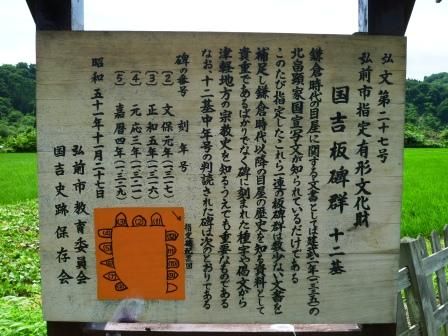 弘文第二十七号
弘前市指定有形文化財
国吉板碑群 十二基
鎌倉時代の目屋に関する文書としては建武二年(一三三五)の
北畠顕家国宣写文が知られているだけである
このたび指定したこれら一連の板碑群は数少ない文書を
補足し鎌倉時代以降の目屋の歴史を知る資料として
貴重であるばかりでなく碑に刻まれた種字や偈文から
津軽地方の宗教史を知るうえでも重要なものである
なお十二基中年号の判読された碑は次のとおりである
碑の番号 刻年号
(2) 文保元年(一三一七)
(3) 正和五年(一三一六)
(4) 元応三年(一三二一)
(5) 嘉暦四年(一三二九)
昭和五十一年十二月二十七日
弘前市教育委員会
国吉史跡保存会